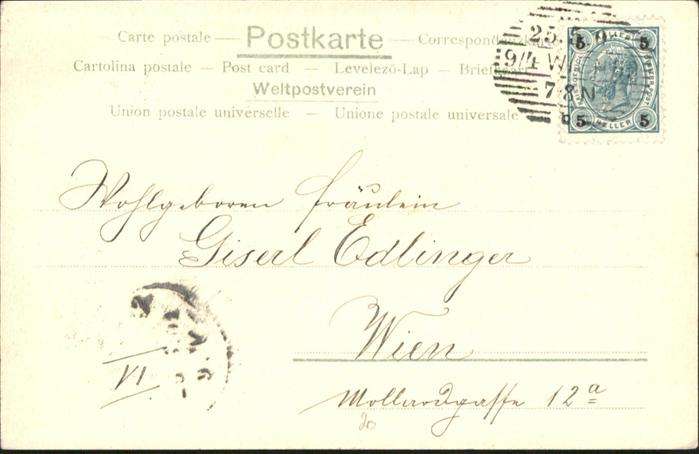 Carte postale — Postkarte — Correspondenzkarte
Cartolina postale — Post card — Levelező-Lap — Briefkaart
Weltpostverein
Union postale universelle — Unione postale universale
25
9/4 W
7-8 N
5 5
HELLER
5 5
Wohlgeboren Fräulein
Giserl Edlinger
Wien
VI
Mollardgasse 12a